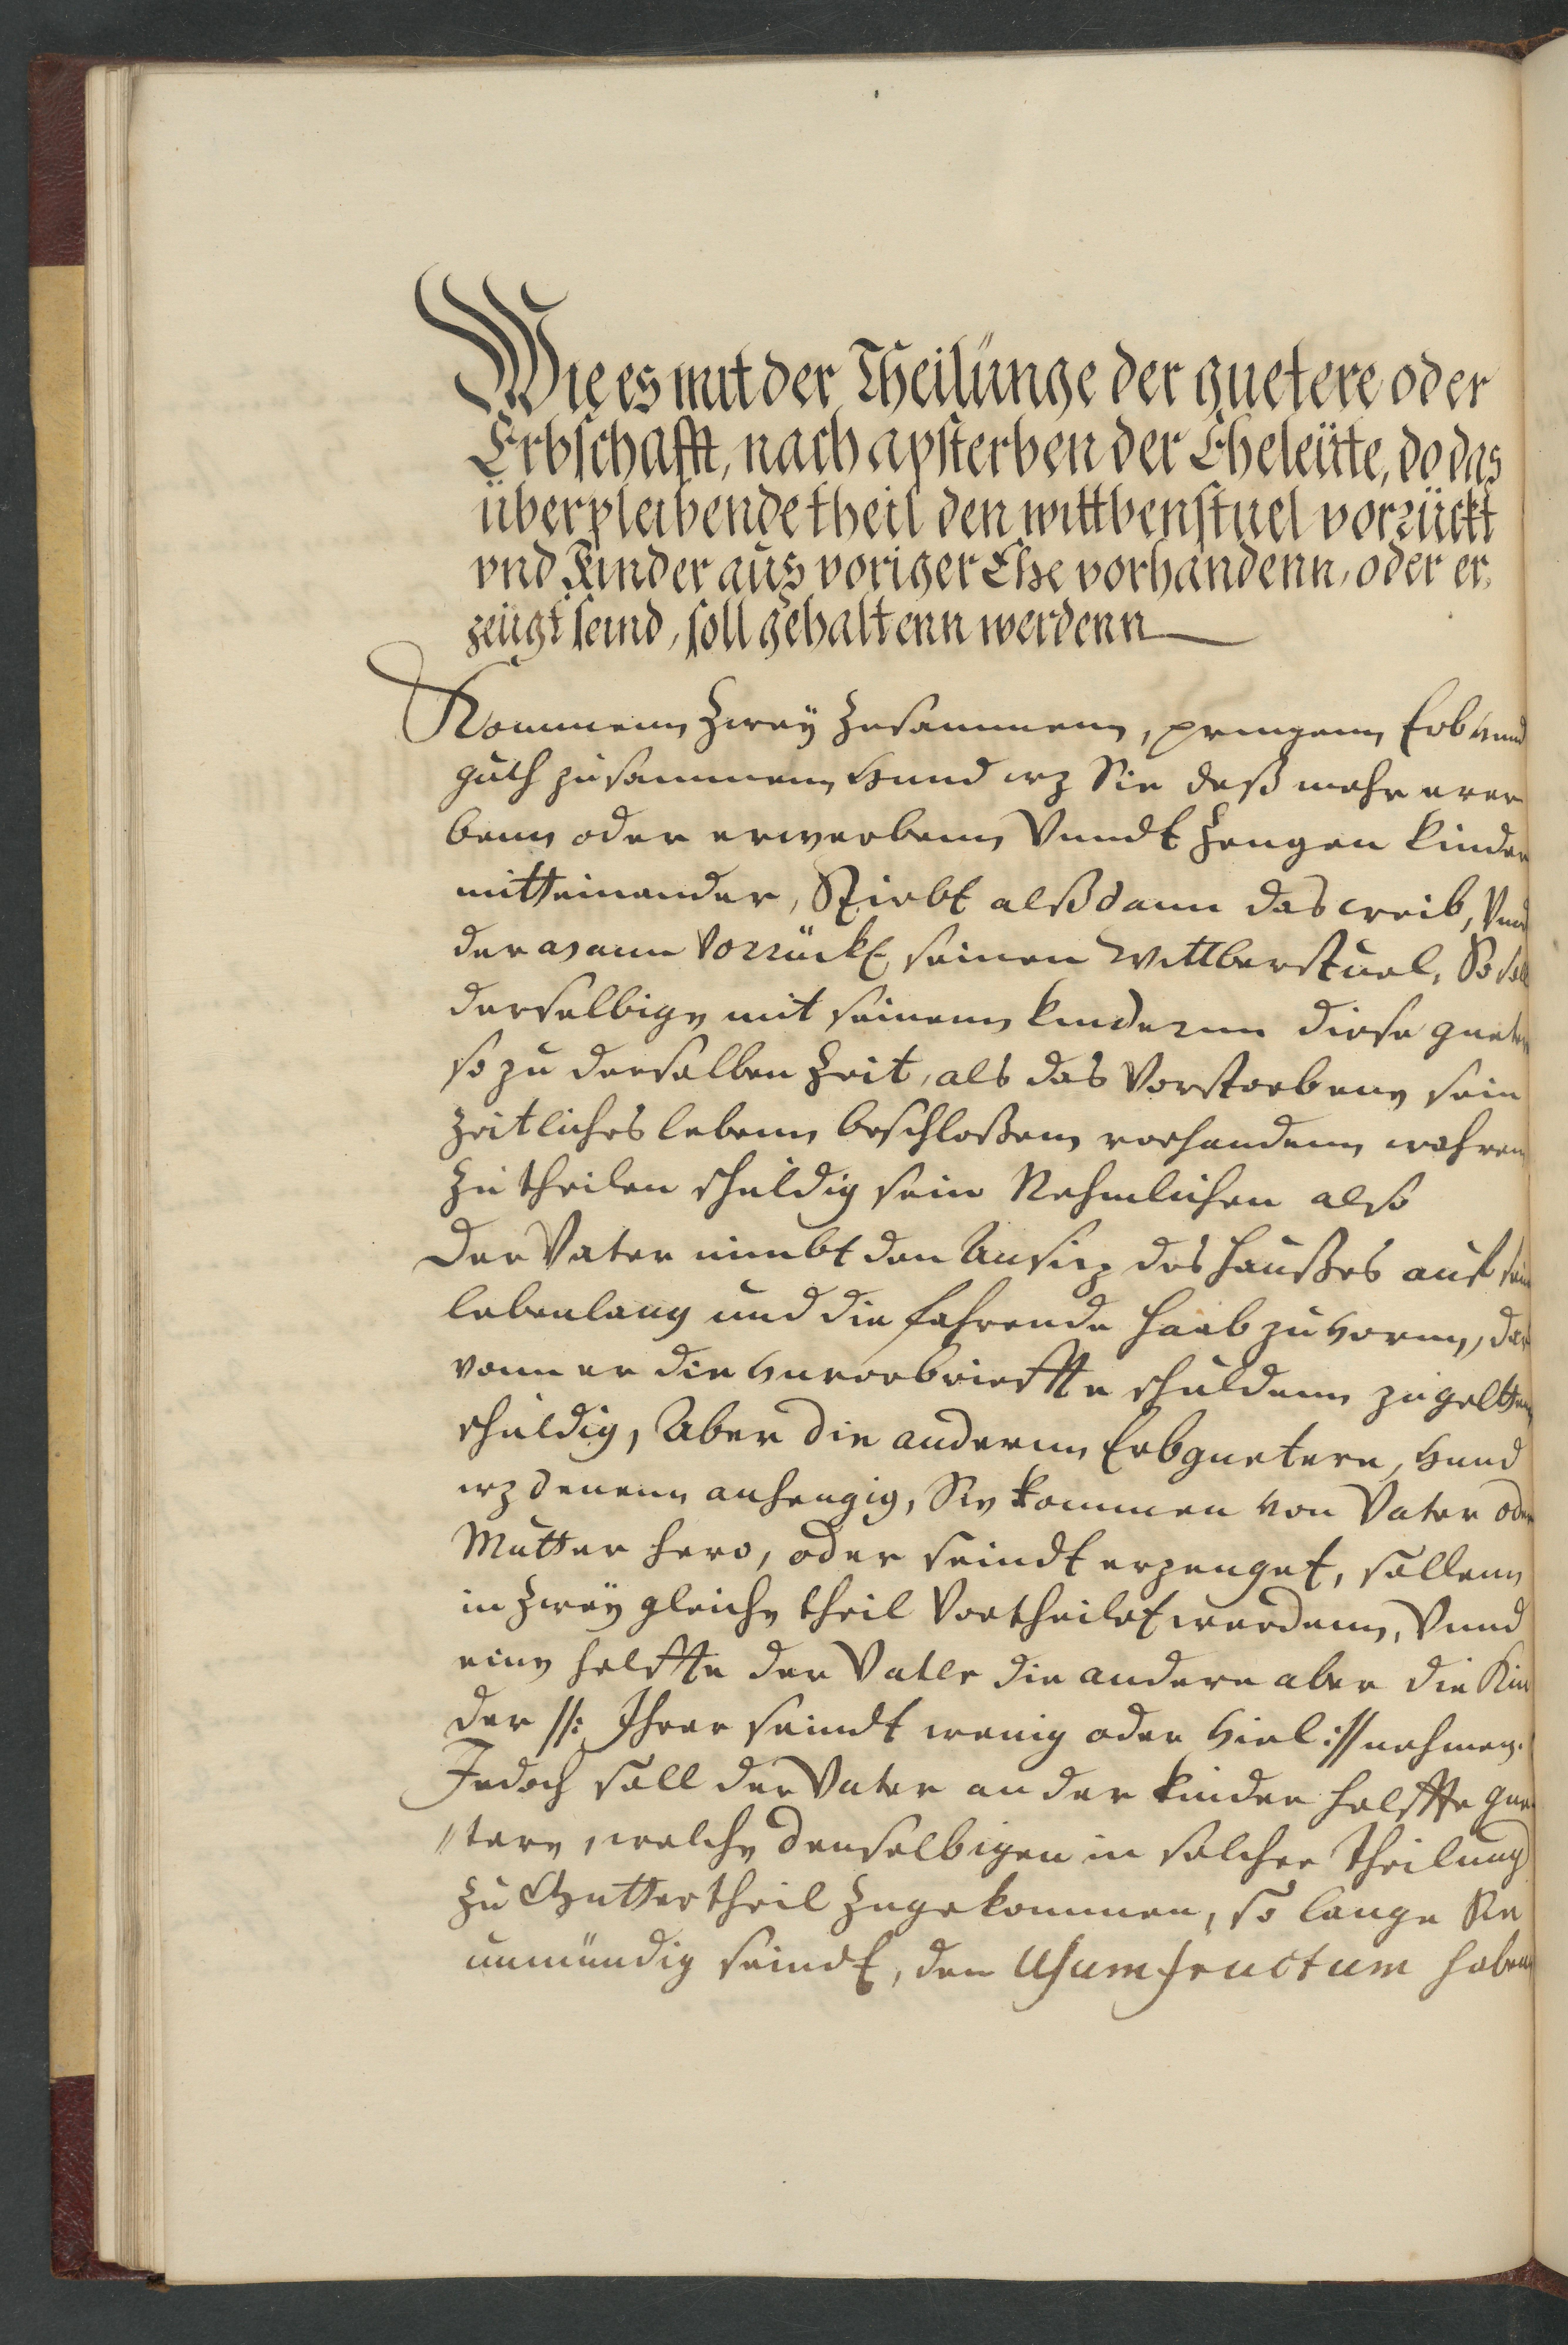 Wie es mit der Theilünge der guetere oder
Erbschafft, nach apsterben der Eheleütte, do das
überpleibende theil den wittbenstuel vorrückt
vnd Kinder aüs voriger Ehe vorhandenn, oder er,
zeügt seind, soll gehaltenn werdenn
Kommenn Zweÿ Zusammenn, pringenn Erb vnnd
guth zusammenn vnnd wz Sie deß mehr erer
benn oder erwerbenn Vnndt Zeugen kinder
mitteinander, Stirbt alßdann das weib, Vnnd
der mann Vorrückt seinen Wittberstuel, So soll
derselbige mit seinenn kindernn diese guetere
so zu derselben Zeit, als das Vorstorbene sein
Zeitliches lebenn beschloßenn vorhandenn wehren
Zu theilen schuldig sein Nehmlichen also
Der Vater nimbt den Ansitz des Haußes auf sein
lebenlang und die fahrende Haab zu vorn, dar
vonn er die vnvorbriefften schuldenn zu geltten
schuldig, Aber die andernn Erbguetere, vnnd
wz denenn anhengig, Sie kommen von Vater oder
Mutter hero, oder seindt erzeuget, sollenn
in Zweÿ gleiche theil Vortheilet werdenn, Vnnd
eine helffte der Vater die andere aber die Kin
der //: Ihrer seindt wenig oder viel :// nehmen.
Jedoch soll der Vater an der kinder helffte gue
//tere, welche denselbigen in solcher theilung
Zu Muttertheil Zugekommen, so lange Sie
unmündig seindt, den Usumfructum haben